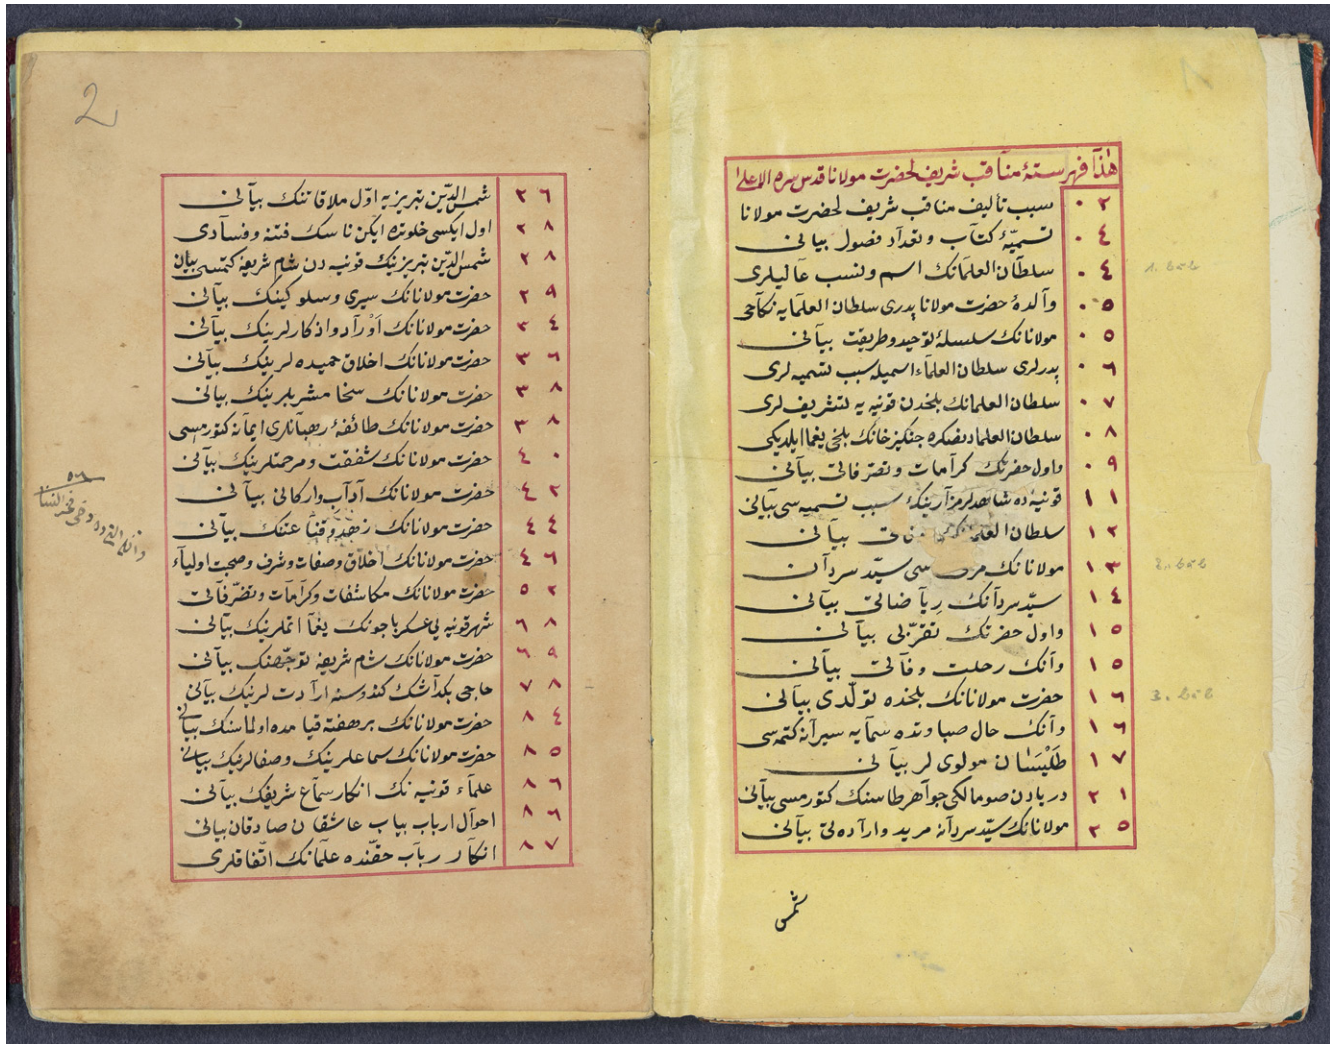 هذا فهرستهٔ مناقب شریف لحضرت مولانا قدس سره الاعلی
٠٢ سبب تألیف مناقب شریف لحضرت مولانا
٠٤ تسمیهٔ کتاب وتعداد فصول بیانی
٠٤ سلطان العلمانك اسم ونسب عالیلری
٠٥ والدهٔ حضرت مولانا پدری سلطان العلمایه نکاحی
٠٥ مولانانك سلسلهٔ توحید وطریقت بیانی
٠٦ پدرلری سلطان العلماء اسمیله سبب تسمیه لری
٠٧ سلطان العلمانك بلخدن قونیه یه تشریف لری
٠٨ سلطان العلمادنصکره جنکیز خانك بلخی یغما ایلدیکی
٠٩ واول حضرتك کرامات وتصرفاتی بیانی
١١ قونیه ده شاهدلر مزارینك سبب تسمیه سی بیانی
١٢ سلطان وفاتی بیانی
١٣ مولانانك سی سید سردان
١٤ سید سردانك ریاضاتی بیانی
١٥ واول حضرتك تقربی بیانی
١٥ وانك رحلت وفاتی بیانی
١٦ حضرت مولانانك بلخده تولدی بیانی
١٦ وانك حال صباوتده سمایه سیرانه کتمه سی
١٧ طَلْیَسَان مولوی لر بیانی
٢١ دریادن صو مالکی جواهر طاسنك کتورمسی بیانی
٢٥ مولانانك سید سردانه مرید وارادتی بیانی
شمس
2
٢٦ شمس الدّین تبریزیه اوّل ملاقاتنك بیانی
٢٨ اول ایکسی خلوتده ایکن ناسك فتنه وفسادی
٢٨ شمس الدّین تبریزینك قونیه دن شام شریفه کتمسی بیان
٢٩ حضرت مولانانك سیری وسلوکینك بیانی
٣٤ حضرت مولانانك اَوْراد واذکارلرینك بیانی
٣٦ حضرت مولانانك اخلاق حمیده لرینك بیانی
٣٨ حضرت مولانانك سخا مشربلرینك بیانی
٣٨ حضرت مولانانك طائفهٔ رهبانلری ایمانه کتورمسی
٤٠ حضرت مولانانك شفقت ومرحمتلرینك بیانی
٤٢ حضرت مولانانك آداب وارکانی بیانی
٤٤ حضرت مولانانك زهد وقناعتنك بیانی
٤٦ حضرت مولانانك اخلاق وصفات وشرف وصحبت اولیاء
٥٢ حضرت مولانانك مکاشفات وکرامات وتصرفاتی
٥٦
٦٨ شهر قونیه یی عسکر باجونك یغما اتملرینك بیانی
٦٩ حضرت مولانانك شام شریفه توجّهنك بیانی
٧٨ حاجی بکداشك کندوسنه ارادت لرینك بیانی
٨٤ حضرت مولانانك بر هفته قیامده اولماسنك بیانی
٨٥ حضرت مولانانك سماعلرینك وصفالرینك بیانی
٨٦ علماء قونیه نك انکار سماع شریفك بیانی
٨٦ احوال ارباب بیاب عاشقان صادقان بیانی
٨٧ انکار رباب حقّنده علمانك اتّفاقلری